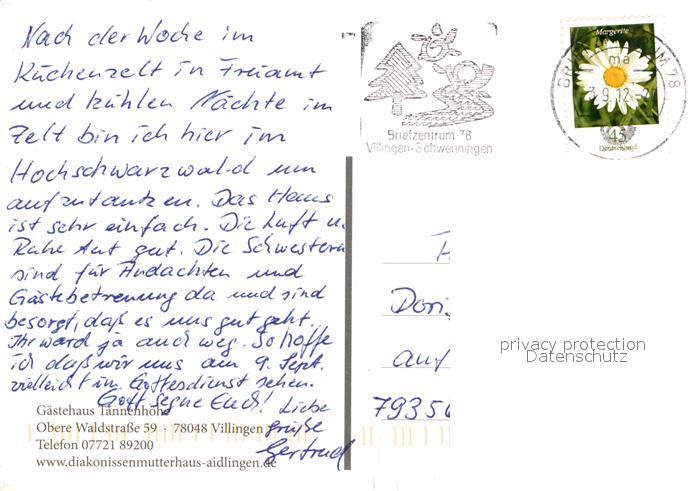 Nach der Woche im
Küchenzelt in Freiamt
und kühlen Nächte im
Zelt bin ich hier im
Hochschwarzwald um
aufzutanken. Das Haus
ist sehr einfach. Die Luft u.
Ruhe tut gut. Die Schwestern
sind für Andachten und
Gästebetreuung da und sind
besorgt, daß es uns gut geht.
Ihr ward ja auch weg. So hoffe
ich daß wir uns am 9. Sept.
vielleicht im Gottesdienst sehen.
Gott segne Euch! Liebe
Grüße
Gertrud
Gästehaus Tannenhöhe
Obere Waldstraße 59 · 78048 Villingen
Telefon 07721 89200
www.diakonissenmutterhaus-aidlingen.de
Briefzentrum 78
Villingen-Schwenningen
Margerite
45
Deutschland
Doris
auf
7935
privacy protection
Datenschutz